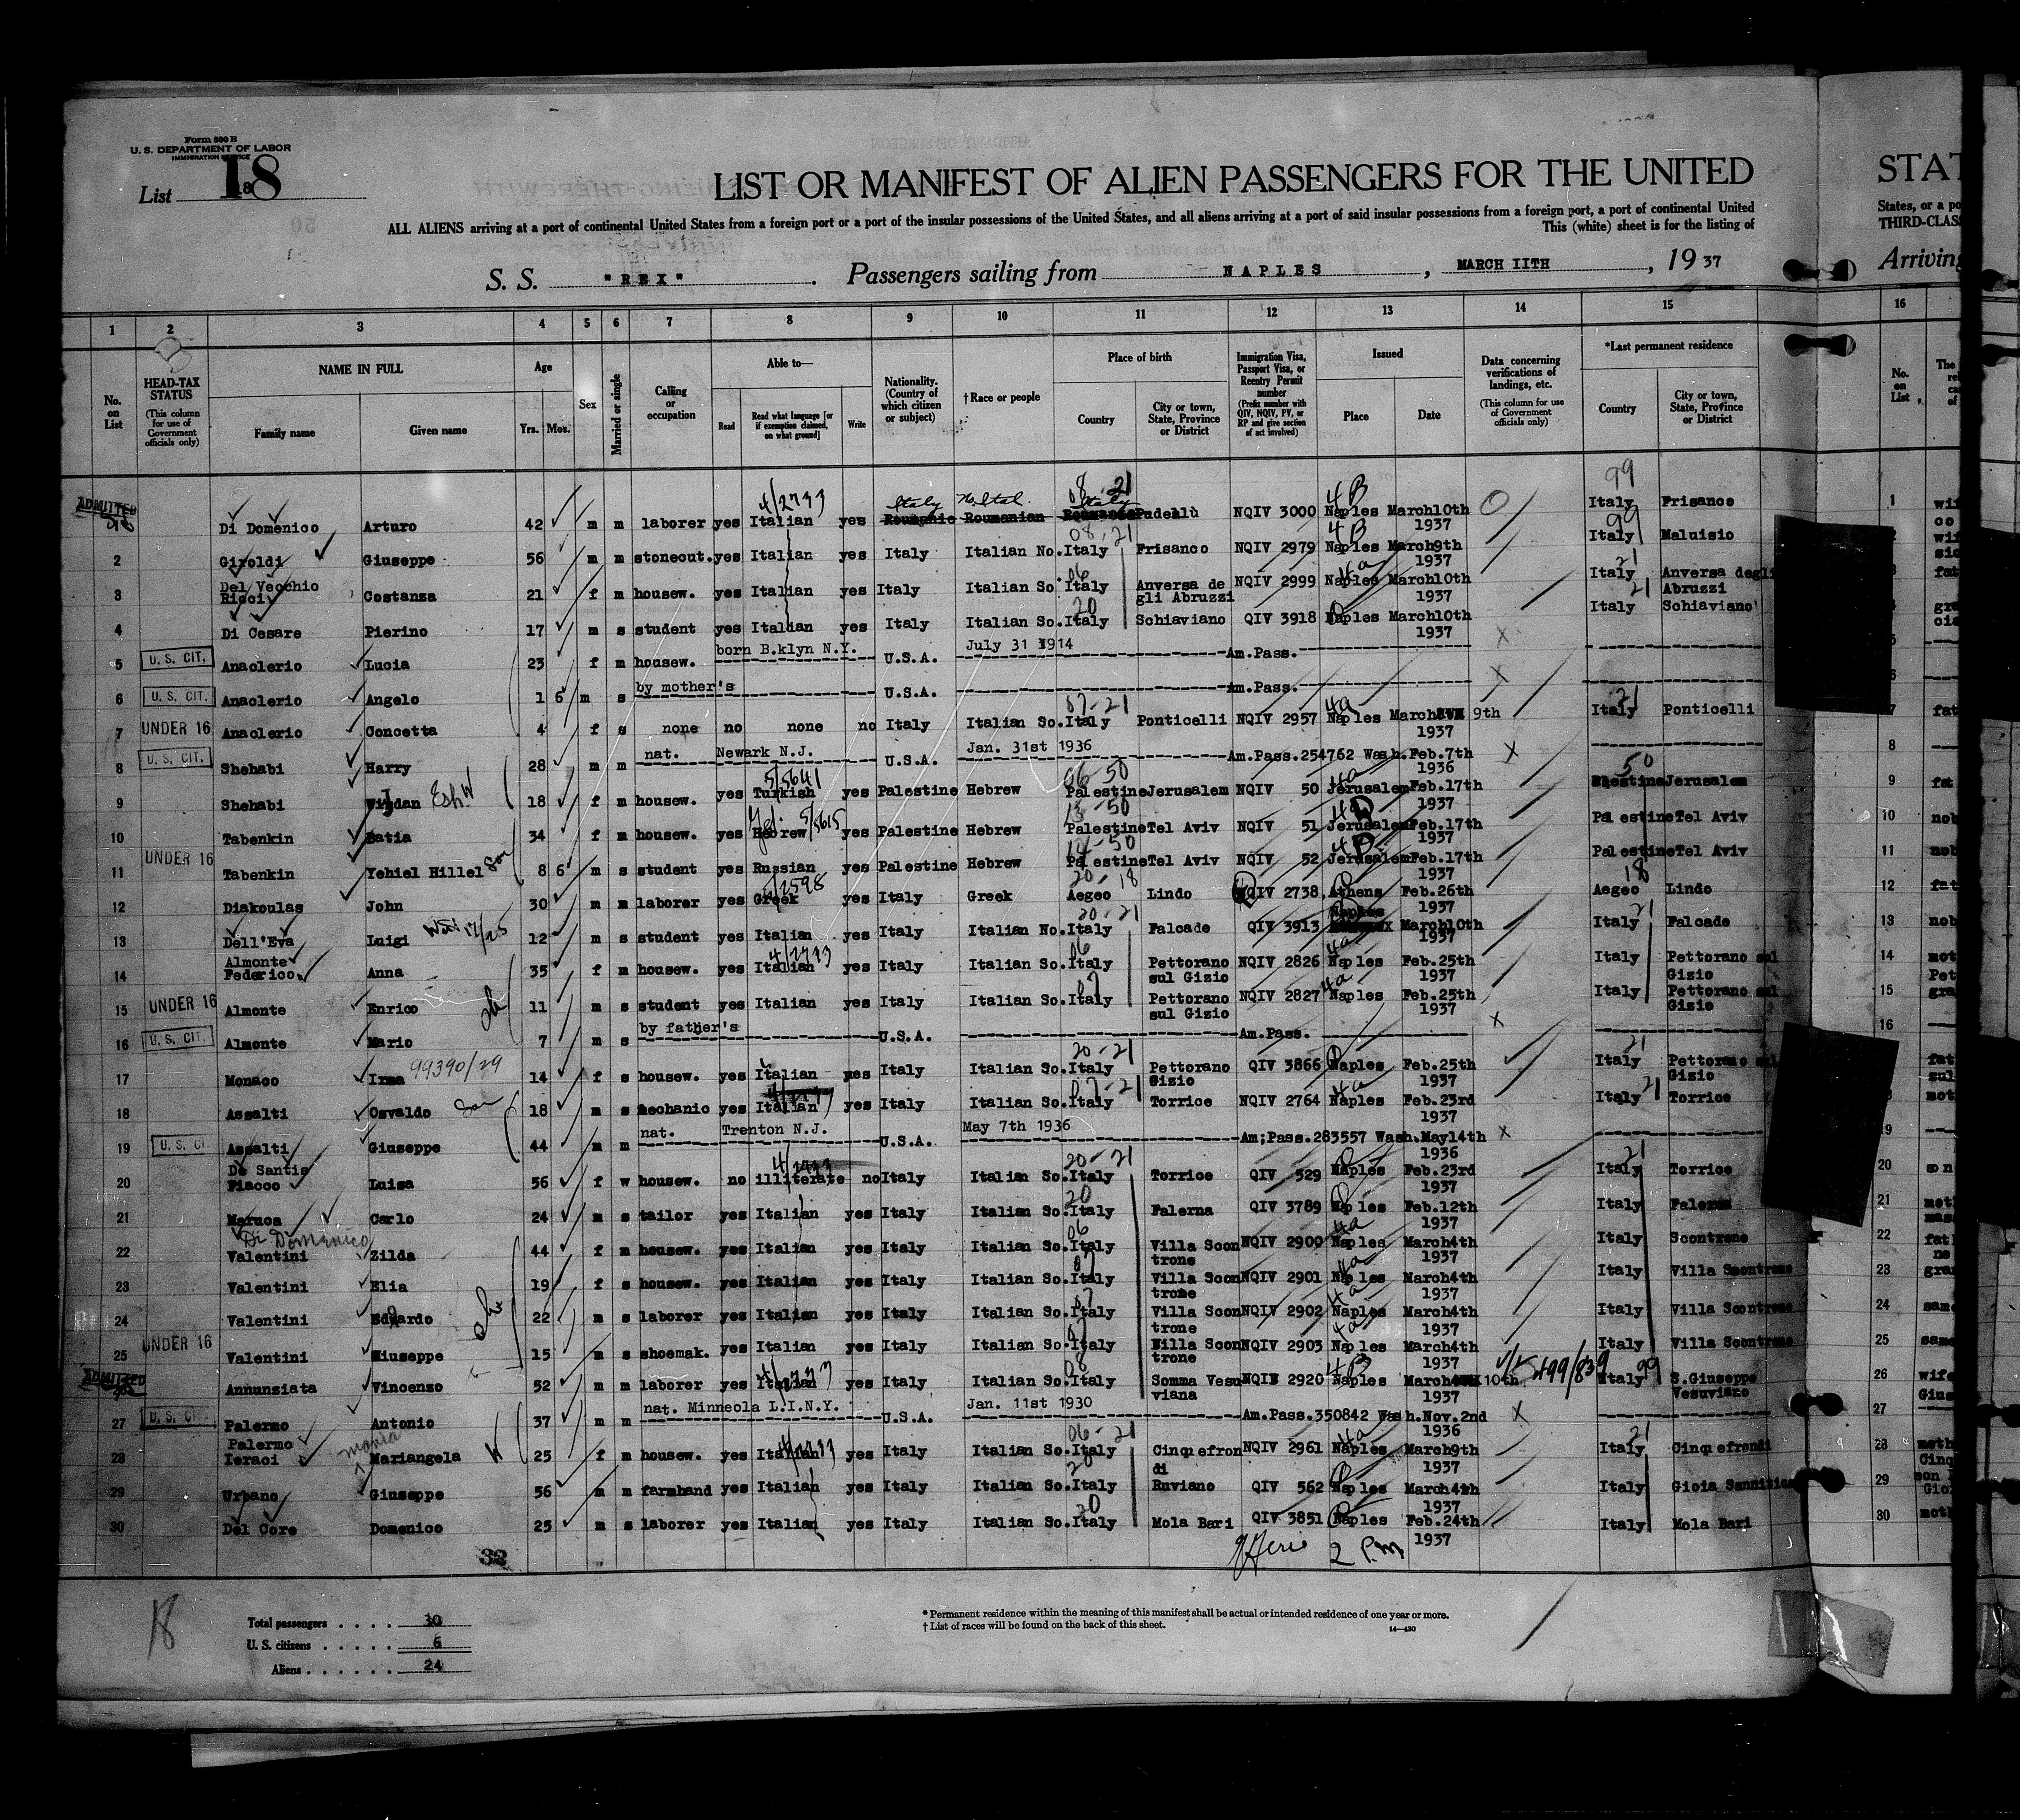 Form 500 B
U. S. DEPARTMENT OF LABOR
IMMIGRATION SERVICE
List 18
LIST OR MANIFEST OF ALIEN PASSENGERS FOR THE UNITED
STAT
ALL ALIENS arriving at a port of continental United States from a foreign port or a port of the insular possessions of the United States, and all aliens arriving at a port of said insular possessions from a foreign port, a port of continental United
States, or a po
This (white) sheet is for the listing of
THIRD-CLAS
S. S. "REX" . Passengers sailing from NAPLES , MARCH IITH , 19 37
Arriving
1 2 3 4 5 6 7 8 9 10 11 12 13 14 15 16
No. on List
HEAD-TAX STATUS (This column for use of Government officials only)
NAME IN FULL
Family name Given name
Age Yrs. Mos.
Sex
Married or single
Calling or occupation
Able to— Read Read what language [or if exemption claimed, on what ground] Write
Nationality. (Country of which citizen or subject)
†Race or people
Place of birth Country City or town, State, Province or District
Immigration Visa, Passport Visa, or Reentry Permit number (Prefix number with QIV, NQIV, PV, or RP and give section of act involved)
Issued Place Date
Data concerning verifications of landings, etc. (This column for use of Government officials only)
*Last permanent residence Country City or town, State, Province or District
No. on List
ADMITTED Di Domenico Arturo 42 m m laborer yes Italian yes Roumanie Roumanian NQIV 3000 Naples March10th 1937 Italy Frisanco
Italy No Ital. Italy
2 Giroldi Giuseppe 56 m m stonecut. yes Italian yes Italy Italian No. Italy Frisanco NQIV 2979 Naples March9th 1937 Italy Maluisio
3 Del Vecchio Ricci Costanza 21 f m housew. yes Italian yes Italy Italian So Italy Anversa de gli Abruzzi NQIV 2999 Naples March10th 1937 Italy Anversa degli Abruzzi
4 Di Cesare Pierino 17 m s student yes Italian yes Italy Italian So. Italy Schiaviano QIV 3918 Naples March10th 1937 Italy Schiaviano
5 U. S. CIT. Anaclerio Lucia 23 f m housew. born B.klyn N.Y. U.S.A. July 31 1914 Am.Pass.
6 U. S. CIT. Anaclerio Angelo 1 6 m s by mother's U.S.A. Am.Pass.
7 UNDER 16 Anaclerio Concetta 4 f s none no none no Italy Italian So. Italy Ponticelli NQIV 2957 Naples March 9th 1937 Italy Ponticelli
8 U. S. CIT. Shehabi Harry 28 m m nat. Newark N.J. U.S.A. Jan. 31st 1936 Am.Pass.254762 Wash.Feb.7th 1936
9 Shehabi 18 f m housew. yes Turkish yes Palestine Hebrew Palestine Jerusalem NQIV 50 Jerusalem Feb.17th 1937 Jerusalem
10 Tabenkin Batia 34 f m housew. yes Hebrew yes Palestine Hebrew Palestine Tel Aviv NQIV 51 Jerusalem Feb.17th 1937 Palestine Tel Aviv
11 UNDER 16 Tabenkin Yehiel Hillel son 8 6 m s student yes Russian yes Palestine Hebrew Palestine Tel Aviv NQIV 52 Jerusalem Feb.17th 1937 Palestine Tel Aviv
12 Diakoulas John 30 m m laborer yes Greek yes Italy Greek Aegeo Lindo NQIV 2738 Athens Feb.26th 1937 Aegeo Lindo
13 Dell'Eva Luigi 12 m s student yes Italian yes Italy Italian No. Italy Falcade QIV 3913 Naples March10th 1937 Italy Falcade
14 Almonte Federico Anna 35 f m housew. yes Italian yes Italy Italian So. Italy Pettorano sul Gizio NQIV 2826 Naples Feb.25th 1937 Italy Pettorano sul Gizio
15 UNDER 16 Almonte Enrico 11 m s student yes Italian yes Italy Italian So. Italy Pettorano sul Gizio NQIV 2827 Naples Feb.25th 1937 Italy Pettorano sul Gizio
16 U. S. CIT. Almonte Mario 7 m s by father's U.S.A. Am.Pass.
17 Monaco Irma 99390/29 14 f s housew. yes Italian yes Italy Italian So. Italy Pettorano Gizio QIV 3866 Naples Feb.25th 1937 Italy Pettorano sul Gizio
18 Assalti Osvaldo son 18 m s mechanic yes Italian yes Italy Italian So. Italy Torrice NQIV 2764 Naples Feb.23rd 1937 Italy Torrice
19 U. S. CI Assalti Giuseppe 44 m m nat. Trenton N.J. U.S.A. May 7th 1936 Am;Pass.283557 Wash.May14th 1936
20 De Santis Fiacco Luisa 56 f w housew. no illiterate no Italy Italian So. Italy Torrice QIV 529 Naples Feb.23rd 1937 Italy Torrice
21 Maruca Carlo 24 m s tailor yes Italian yes Italy Italian So. Italy Falerna QIV 3789 Naples Feb.12th 1937 Italy Falerna
Di Domenico
22 Valentini Zilda 44 f m housew. yes Italian yes Italy Italian So. Italy Villa Scontrone NQIV 2900 Naples March4th 1937 Italy Scontrone
23 Valentini Elia 19 f s housew. yes Italian yes Italy Italian So. Italy Villa Scontrone NQIV 2901 Naples March4th 1937 Italy Villa Scontrone
24 Valentini Eduardo 22 m s laborer yes Italian yes Italy Italian So. Italy Villa Scontrone NQIV 2902 Naples March4th 1937 Italy Villa Scontrone
25 UNDER 16 Valentini Giuseppe 15 m s shoemak. yes Italian yes Italy Italian So. Italy Villa Scontrone NQIV 2903 Naples March4th 1937 Italy Villa Scontrone
ADMITTED Annunziata Vincenzo 52 m m laborer yes Italian yes Italy Italian So. Italy Somma Vesuviana 2920 Naples March 10th 1937 Italy S.Giuseppe Vesuviano
27 U. S. CIT. Palermo Antonio 37 m m nat. Mineola L.I.N.Y. U.S.A. Jan. 11st 1930 Am.Pass.350842 Wash.Nov.2nd 1936
28 Palermo Ieraci Mariangela 25 f m housew. yes Italian yes Italy Italian So. Italy Cinquefrondi NQIV 2961 Naples March9th 1937 Italy Cinquefrondi
29 Urbano Giuseppe 56 m m farmhand yes Italian yes Italy Italian So. Italy Ruviano QIV 562 Naples March4th 1937 Italy Gioia Sannitica
30 Del Core Domenico 25 m s laborer yes Italian yes Italy Italian So. Italy Mola Bari QIV 3851 Naples Feb.24th 1937 Italy Mola Bari
32
2 P.M
18
Total passengers . . . . 30
U. S. citizens . . . . . 6
Aliens . . . . . . 24
* Permanent residence within the meaning of this manifest shall be actual or intended residence of one year or more.
† List of races will be found on the back of this sheet.
14—430